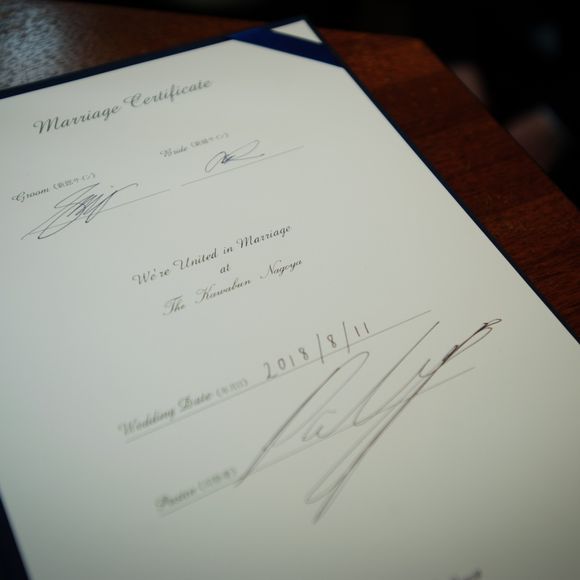 Marriage Certificate
Groom (新郎サイン)
Bride (新婦サイン)
We're United in Marriage
at
The Kawabun Nagoya
Wedding Date (年月日) 2018/8/11
Pastor (司式者)